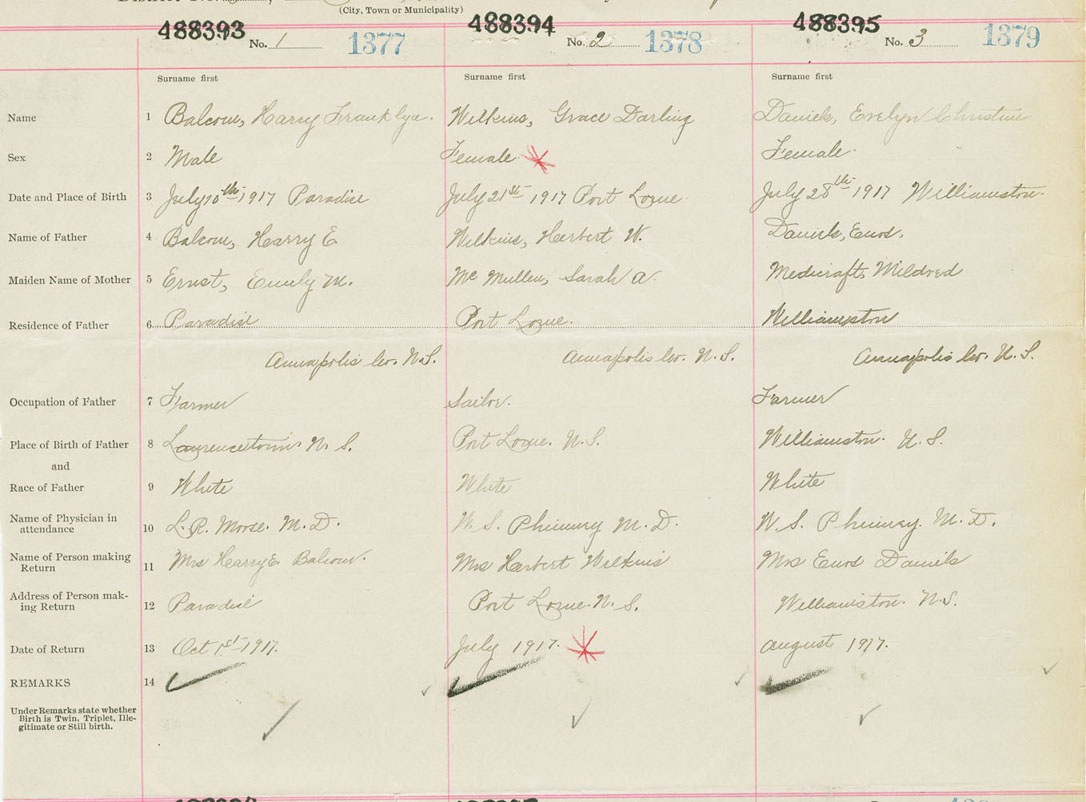 (City, Town or Municipality)
488393 488394 488395
No. 1 1377 No. 2 1378 No. 3 1379
Surname first Surname first Surname first
Name 1 Balcom, Harry Franklyn. Wilkins, Grace Darling Daniels, Evelyn Christine
Sex 2 Male Female Female
Date and Place of Birth 3 July 10th 1917 Paradise July 21st 1917 Port Lorne July 28th 1917 Williamston
Name of Father 4 Balcom, Harry E Wilkins, Herbert W. Daniels, Enos.
Maiden Name of Mother 5 Ernst, Emily M. McMullen, Sarah A. Medicraft, Mildred
Residence of Father 6 Paradise Port Lorne. Williamston
Annapolis Co. N.S. Annapolis Co. N.S. Annapolis Co. N.S.
Occupation of Father 7 Farmer Sailor. Farmer
Place of Birth of Father 8 Laurencetown N. S. Port Lorne. N.S. Williamston. N. S.
and
Race of Father 9 White White White
Name of Physician in
attendance 10 L. R. Morse. M. D. W. S. Phinney M. D. W. S. Phinney. M. D.
Name of Person making
Return 11 Mrs Harry E Balcom. Mrs Herbert Wilkins Mrs Enos Daniels
Address of Person mak-
ing Return 12 Paradise Port Lorne. N. S. Williamston. N.S.
Date of Return 13 Oct 1st 1917. July 1917. August 1917.
REMARKS 14
Under Remarks state whether
Birth is Twin, Triplet, Ille-
gitimate or Still birth.